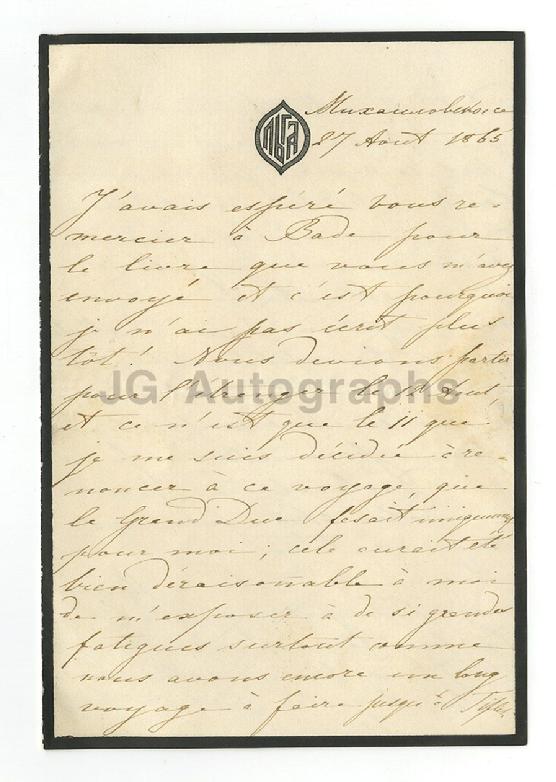 Михаиловское
27 Août 1865
J'avais espéré vous re-
mercier à Bade pour
le livre que vous m'avez
envoyé et c'est pourquoi
je n'ai pas écrit plus
tôt! Nous devions partir
pour l'étranger le 12 Août,
et ce n'est que le 11 que
je me suis décidée à re-
noncer à ce voyage, que
le Grand Duc fesait uniquement
pour moi; cela aurait été
bien déraisonable à moi
de m'exposer à de si grandes
fatigues surtout comme
nous avons encore un long
voyage à faire jusqu'à Tiflis.
JG Autographs